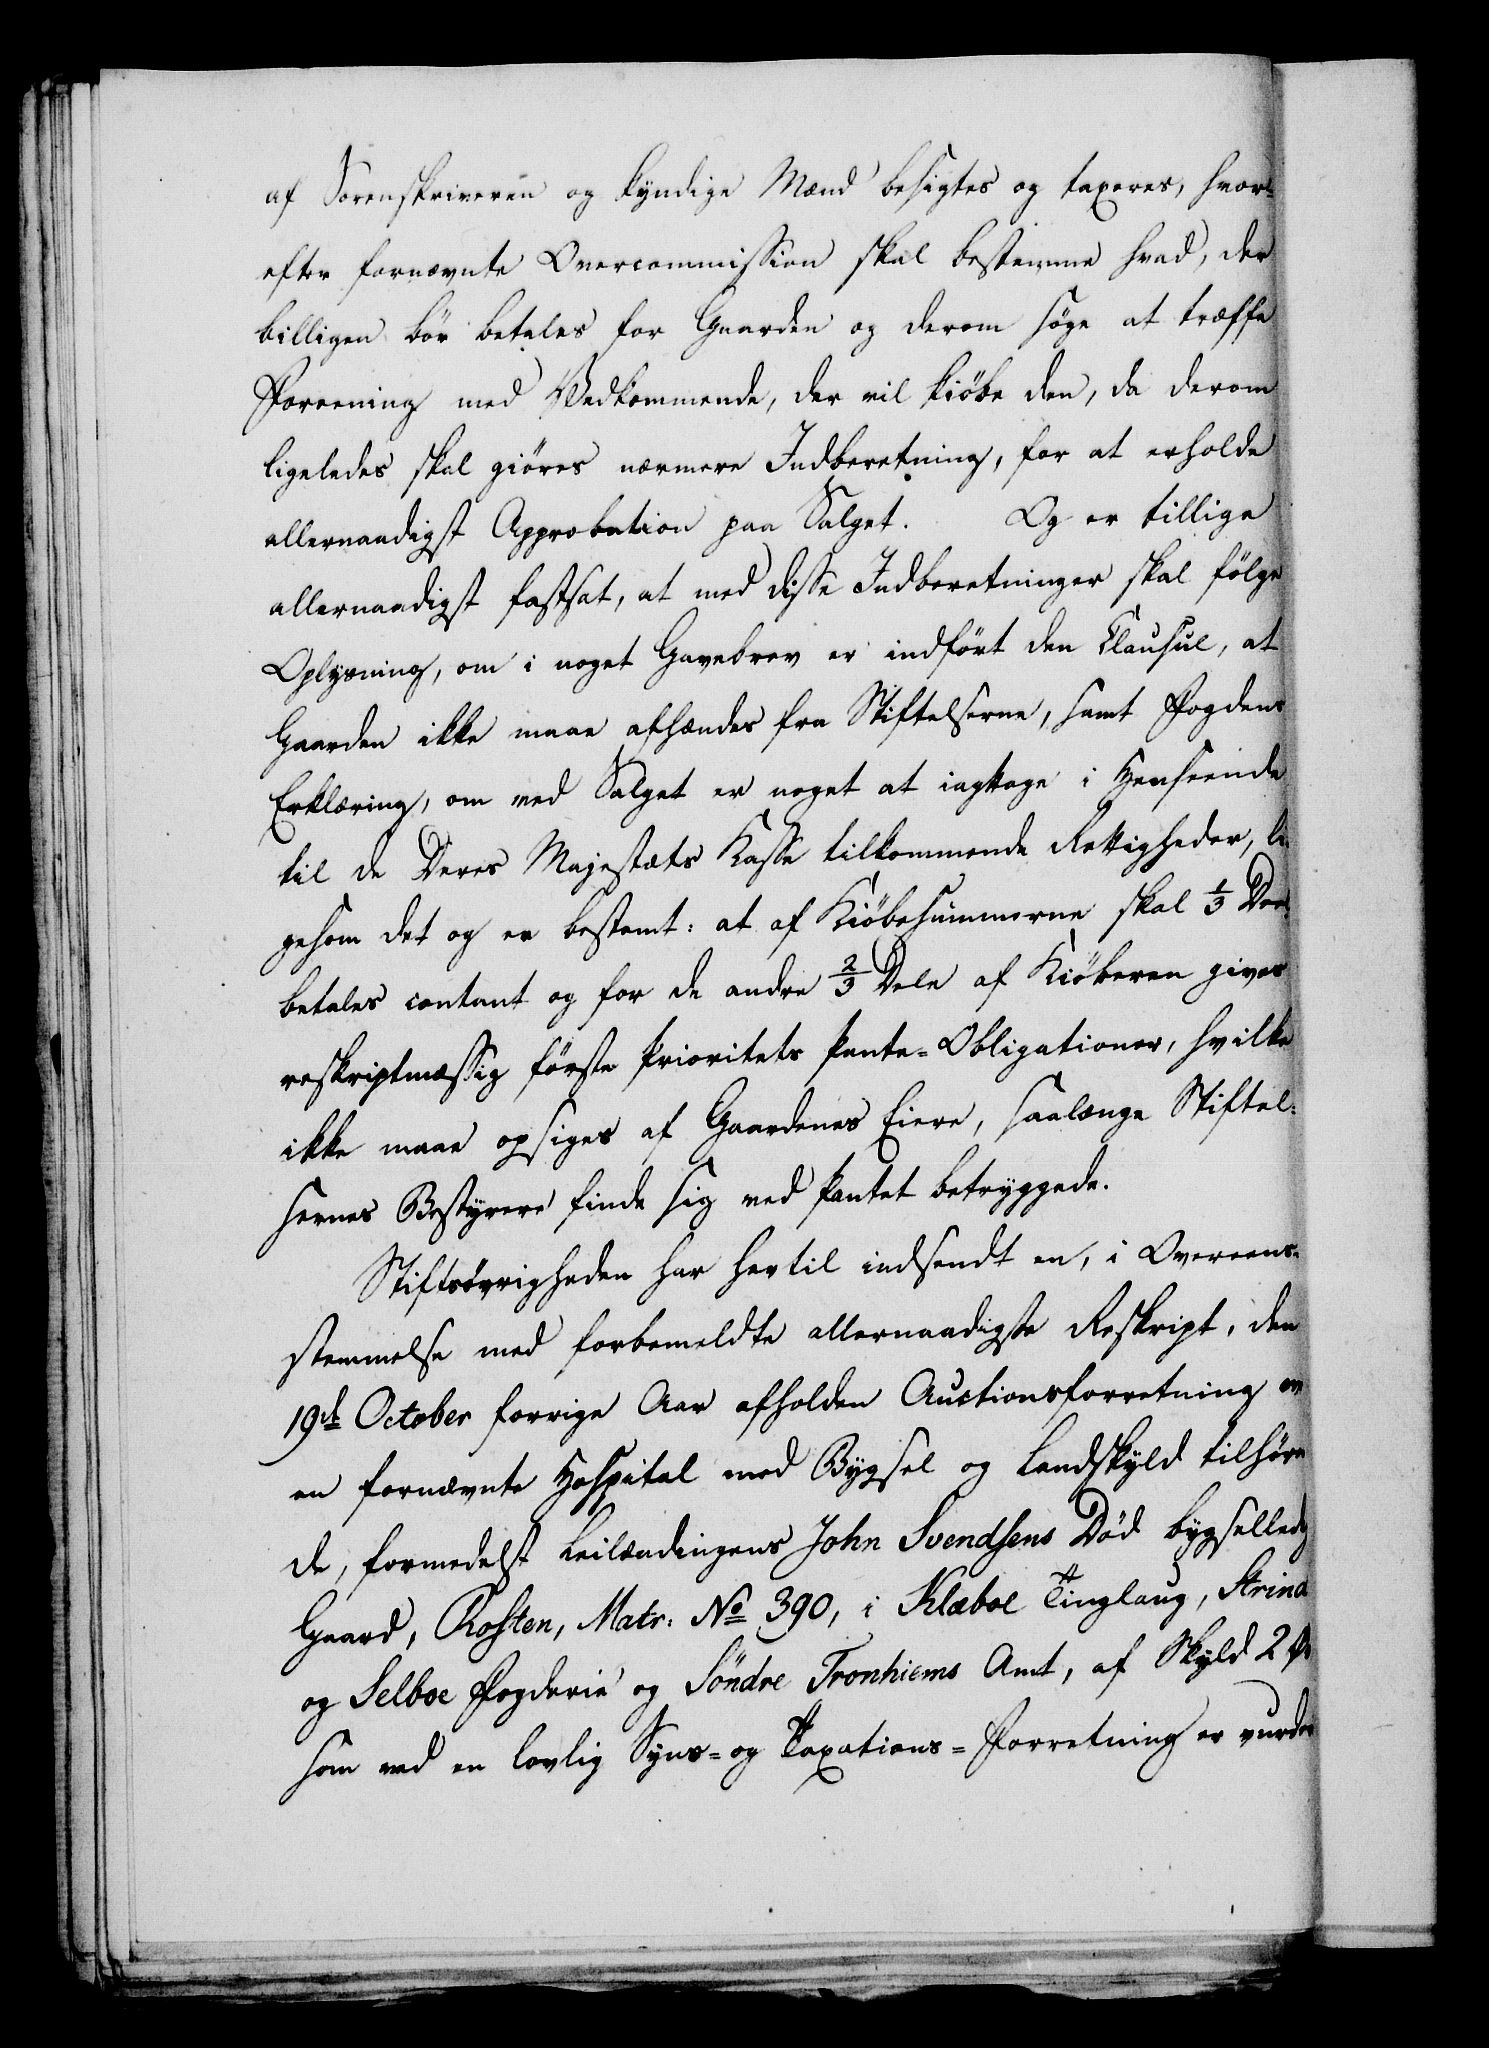 af Sorenskriveren og kyndige Mænd besigtes og taxeres, hvor-
efter fornævnte Overcommission skal bestemme hvad, der
billigen bör betales for Gaarden og derom söge at træffe
Foreening med Vedkommende, der vil kiöbe den, da derom
ligeledes skal giöres nærmere Indberetning, for at erholde
allernaadigst Approbation paa Salget. Og er tillige
allernaadigst fastsat, at med disse Indberetninger skal fölge
Oplysning, om i noget Gavebrev er indfört den Clausul, at
Gaarden ikke maae afhændes fra Stiftelserne, samt Fogdens
Erklæring, om ved Salget er noget at iagttage i Henseende
til de Deres Majestæts Kasse tilkommende Rettigheder, li-
gesom det og er bestemt: at af Kiöbesummerne skal 1/3 Deel
betales contant og for de andre 2/3 Dele af Kiöberen gives
reskriptmæssig förste Prioritets Pante-Obligationer, hvilke
ikke maae opsiges af Gaardenes Eiere, saalænge Stiftel-
sernes Bestyrere finde sig ved Pantet betryggede.
Stiftsövrigheden har hertil indsendt en, i Overeens-
stemmelse med forbemeldte allernaadigste Reskript, den
19de October forrige Aar afholden Auctionsforretning ov
en fornævnte Hospital med Bygsel og Landskyld tilhören
de, formedelst Leilændingens John Svendsens Död bygselledig
Gaard, Rosten, Matr: No 390, i Klæboe Tinglaug, Strind
og Selboe Fogderie og Söndre Tronhiems Amt, af Skyld 2
som ved en lovlig Syns- og Taxations-Forretning er vurde